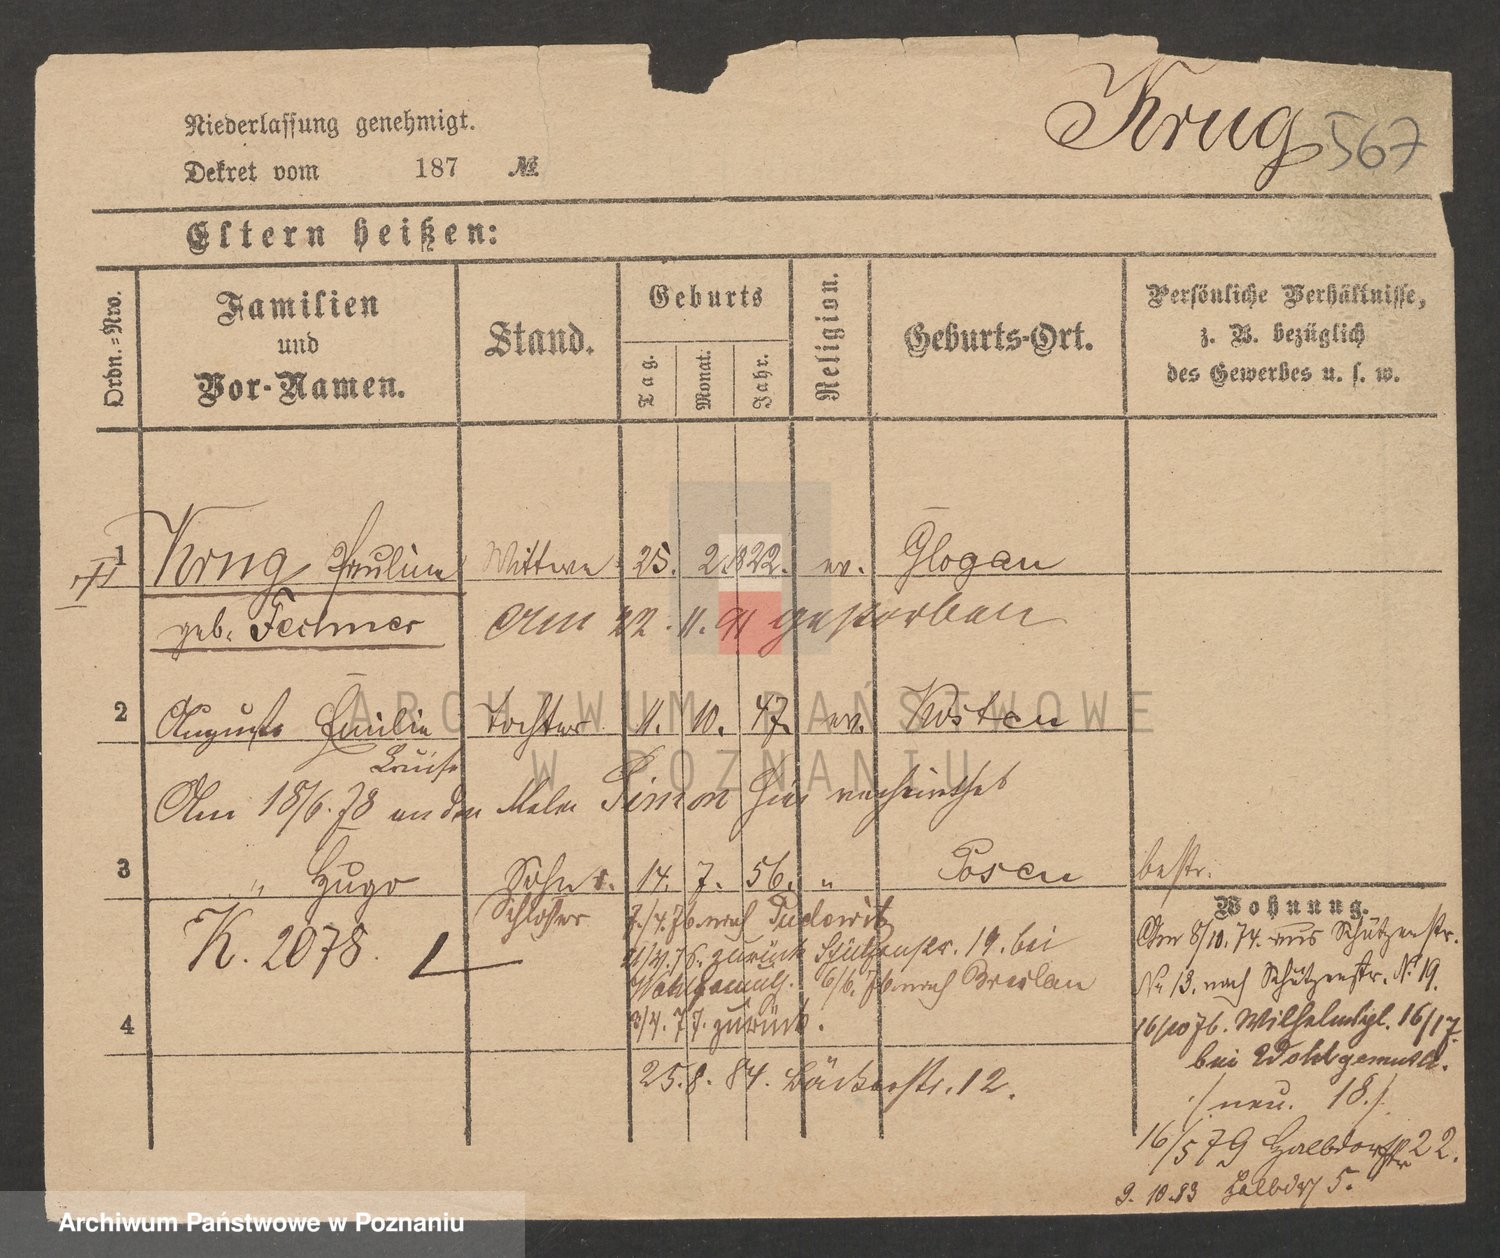 Krug 567
Niederlassung genehmigt.
Dekret vom 187 №
Eltern heißen:
Ordn.=Nro.
Familien
und
Vor-Namen.
Stand.
Geburts
Tag.
Monat.
Jahr.
Religion.
Geburts-Ort.
Persönliche Verhältnisse,
z. B. bezüglich
des Gewerbes u. s. w.
1 Krug Pauline Wittwe 25. 2. 1822. ev. Glogau
geb. Fechner am 22. 11. 91 gestorben
2 Auguste Emilie Tochter 11. 10. 47. ev. Kosten
Luise
Am 18/6. 78 an den Maler Simon hier verheirathet
3 " Hugo Sohn 14. 7. 56. " Posen bestr.
Schlosser
K. 2078.
7./4.76. nach Pudewitz
zurück Schützenstr. 19. bei
Wohlgemuth. 6/6. 76 nach Breslau
4 3/4. 77. zurück.
25.8. 84. Bäckerstr. 12.
Wohnung.
Am 8/10. 74. aus Schützenstr.
No 13. nach Schützenstr. No 19.
16/10 76. Wilhelmspl. 16/17
bei Wohlgemuth.
./. neu. 18 ./.
16/5 79 Halbdorfstr 22.
9. 10. 83 Halbdrf 5.
ARCHIWUM PAŃSTWOWE
W POZNANIU
Archiwum Państwowe w Poznaniu